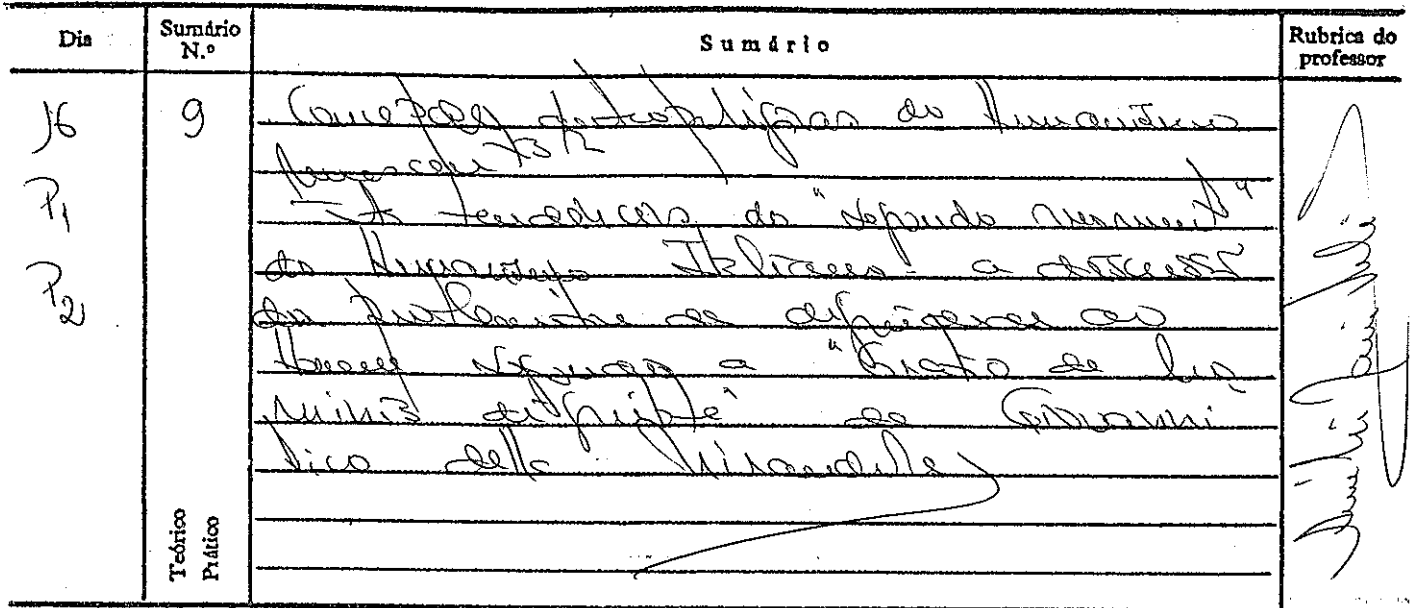 Dia
Sumário N.º
Sumário
Rubrica do professor
16
P1
P2
9
Concepções antropológicas do Humanismo
- As tendências do "segundo momento"
do Humanismo Italiano - a discussão
da problemática da dignidade do
Homem segundo a "Oratio de ho
minis dignitate" de Giovanni
Pico della Mirandola
Teórico
Prático